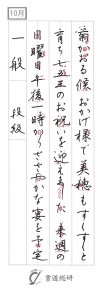 10月
前かおる候 おかげ様で美穂もすくすくと
育ち七五三のお祝いを迎えます 来週の
日曜日午後一時からささやかな宴を予定
一般 段級
書道総研